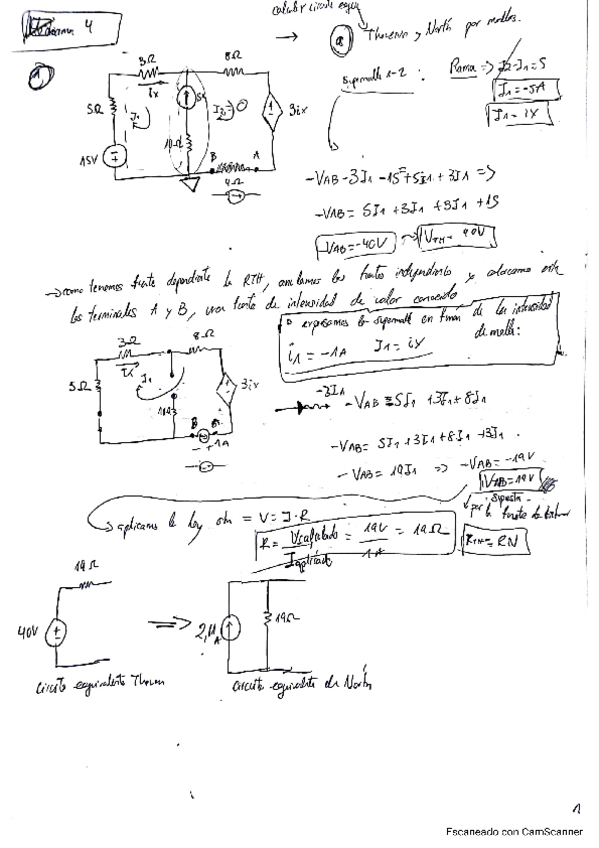 calcular circuito equiv
4
→ a Thevenin y Norton por mallas.
1
3Ω
8Ω
ix
5Ω
I1
10Ω
3ix
15V
B
A
4Ω
supermalla 1-2 :
Rama => I2-I1=5
I1=-5A
I1=ix
-VAB-3I1-15=5I1+3I1 =>
-VAB= 5I1+3I1+3I1+15
VAB=-40V
VTH=40V
→como tenemos fuente dependiente la RTH, anulamos las fuentes independientes y colocamos entre
los terminales A y B, una fuente de intensidad de valor conocido
expresamos la supermalla en de las intensidades
de malla:
i1 = -1A I1 = ix
3Ω
8Ω
ix
I1
5Ω
10Ω
3ix
B
- + 1A
-3I1
-VAB=5I1+3I1+8I1
-VAB= 5I1+3I1+8I1+3I1
-VAB= 19I1 => -VAB=-19V
VAB=19V
→ aplicamos la ley ohm = V=I·R
R= Vcalculado / Iaplicada = 19V / 1A = 19Ω
RTH=RN
19Ω
40V
2,1 A
19Ω
circuito equivalente Theven
circuito equivalente de Norton
1
Escaneado con CamScanner